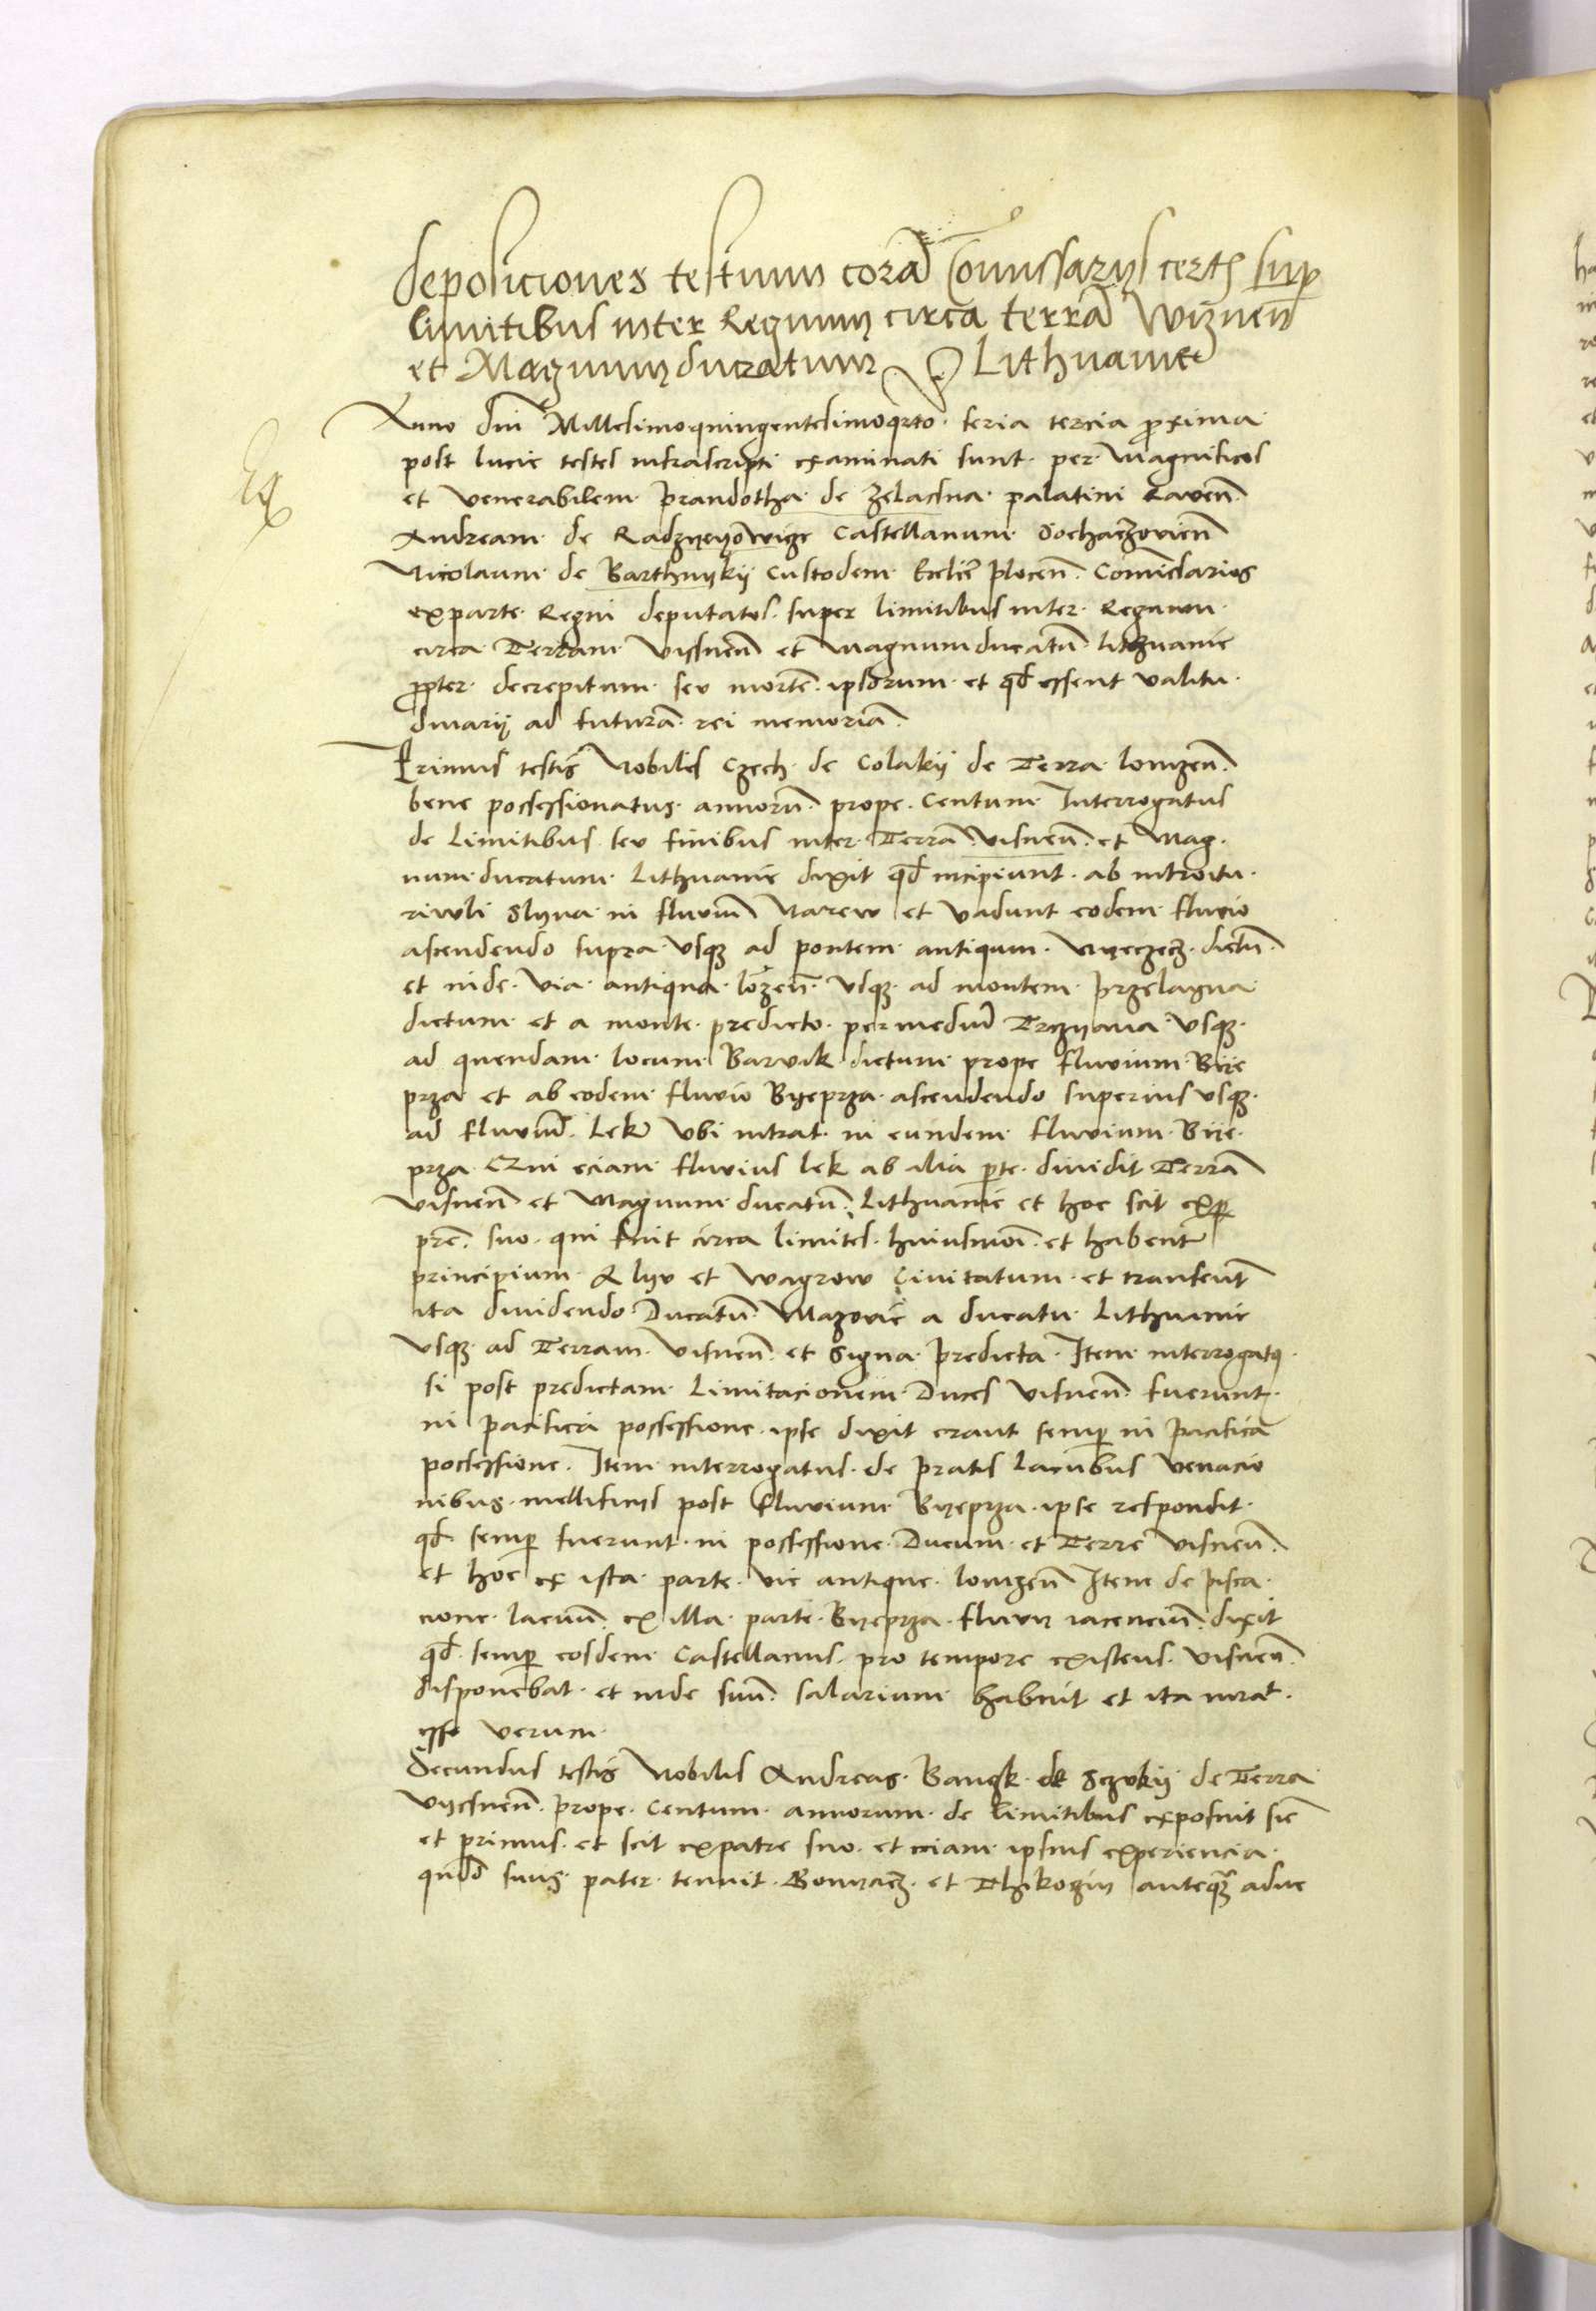 deposiciones testium corā Comissarijs certis sup
limitibus inter Regnum circa terrā Wiznen̄
et Magnum ducatum Lithuanie
Anno dn̄i Millesimoquingentesimoqrto feria tercia proxima
post lucie testes infrascripti examinati sunt per Magnificos
et venerabilem Prandotha de Zelasna palatini Raven̄
Andream de Radzyeyowicze Castellanum Sochaczovien̄
Nicolaum de Barthnyky Custodem Ecclie Plocen̄ Comissarios
ex parte Regni deputatos super limitibus inter Regnum
circa Terram Visnen̄ et magnum ducatū lithuanie
propter decrepitum seu mortē ipsorum et qd essent valitu
dinarij ad futurā rei memoriā
Primus testis Nobilis Czech de Colaky de Terra lomzen̄
bene possessionatus annorū prope Centum Interrogatus
de Limitibus seu finibus inter Terrā visnen̄ et Mag
num ducatum Lithuanie dixit qd incipiunt ab introitu
riwli Slyna in fluviū Narew et vadunt eodem fluvio
ascendendo supra vsqz ad pontem antiqum dictū
et inde via antiqua lozen̄ vsqz ad montem Przelagna
dictum et a monte predicto per mediū Trczyana vsqz
ad quendam locum Barvik dictum prope fluvium Bye
prza et ab eodem fluvio Byeprza ascendendo superius vsqz
ad fluviū Lek vbi intrat in eundem fluvium Bye
prza Qui eciam fluvius lek ab alia pte dividit Terrā
visnen̄ et Magnum ducatū Lithuanie et hoc scit ex
pre suo qui fuit circa limites huiusmōi et habent
principium A lyv et Wagrow Civitatum et transeunt
ita dividendo Ducatū Mazovie a ducatu Lithuanie
vsqz ad Terram visnen̄ et Signa predicta Item interrogatus
si post predictam Limitacionem Duces visnen̄ fuerunt
in pacifica possessione ipse dixit erant semp in pacifica
possessione Item interrogatus de pratis Lacubus venacio
nibus mellificijs post fluvium Byeprza ipse respondit
qd semp fuerunt in possessione Ducum et Terre visnen̄
et hoc ex ista parte vie antique lomzen̄ Item de pisca
cione lacuū ex illa parte Byeprza fluvij iacenciū dixit
qd semp eosdem Castellanus pro tempore existens visnen̄
disponebat et inde suū salarium habuit et ita iurat
esse verum
Secundus testis Nobilis Andreas Bangk de Sczuky de Terra
vyesnen̄ prope Centum annorum de limitibus exposuit sic
et primus et scit ex patre suo et eciam ipsius experiencia
qndo suus pater tenuit Gonyacz et Thikozin anteqz adue